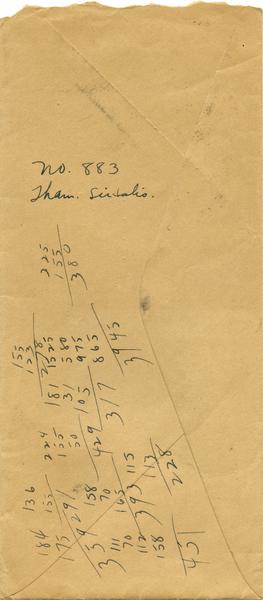 No. 883
Tham. Sirtalis.
225
155
380
155
23
278
1525
580
975
865
3945
181
31
105
317
224
155
50
429
136
155
291
184
175
359
158
70
165
393
111
70
112
158
451
115
113
228